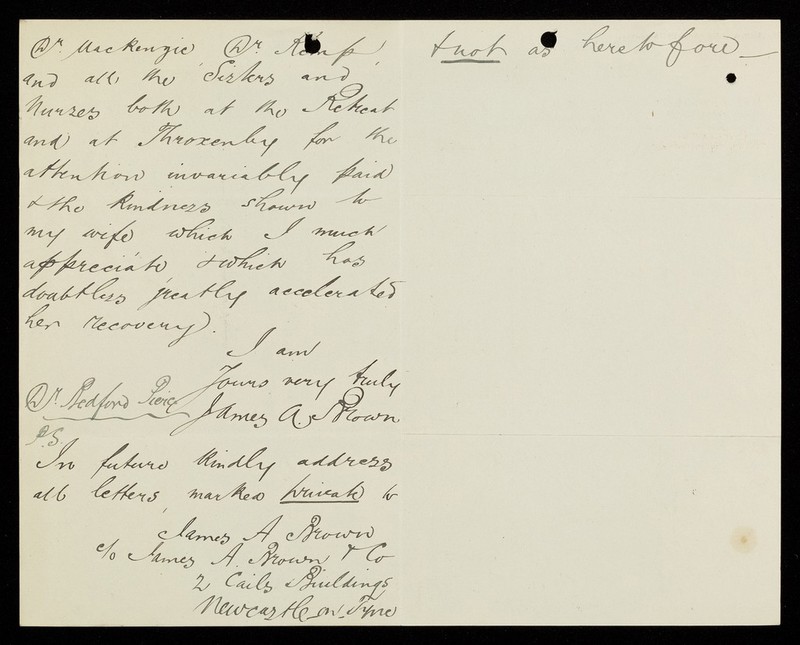 Dr. Mackenzie, Dr. Kemp,
and all the Sisters and
Nurses both at the Retreat
and at Throxenby for the
attention invariably paid
& the kindness shown to
my wife which I much
appreciate & which has
doubtless greatly accelerated
her recovery.
I am
Yours very truly
James A. Brown
Dr. Bedford Pierce
P.S.
In future kindly address
all letters, marked private to
James A Brown
c/o James A. Brown & Co
2 Buildings
Newcastle on Tyne
& not as heretofore